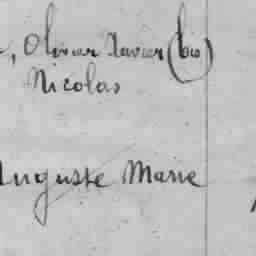 , Olivier Xavier (bis)
Nicolas
Auguste Marie